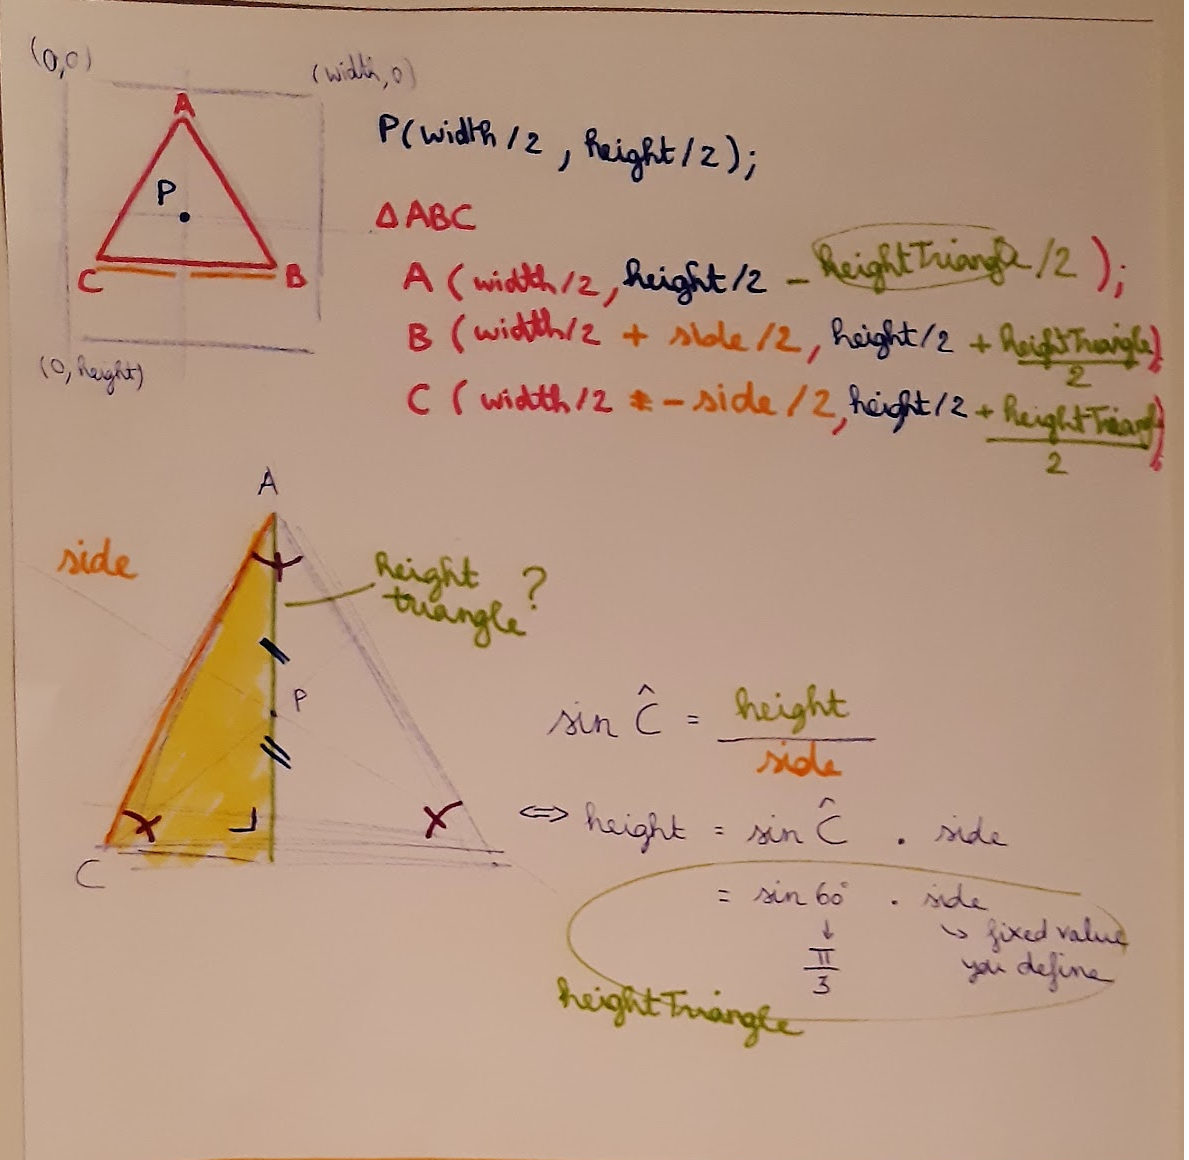 (0,0)
(width,0)
A
P
C
B
(0, height)
P(width/2, height/2);
Δ ABC
A (width/2, height/2 - heightTriangle/2);
B (width/2 + side/2, height/2 + heightTriangle/2)
C (width/2 - side/2, height/2 + heightTriangl/2)
A
side
height triangle ?
P
C
sin Ĉ = height/side
⇔ height = sin Ĉ . side
= sin 60° . side
↓ π/3
↳ fixed value
you define
heightTriangle